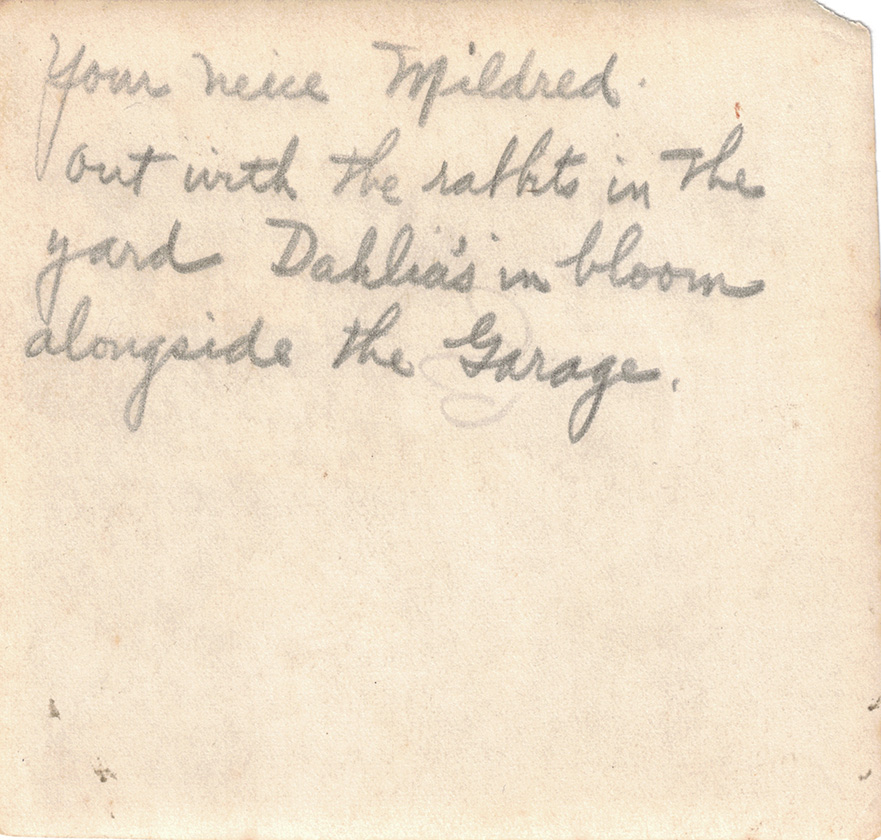 Your neice Mildred.
out with the rabbits in the
yard Dahlia's in bloom
alongside the Garage.